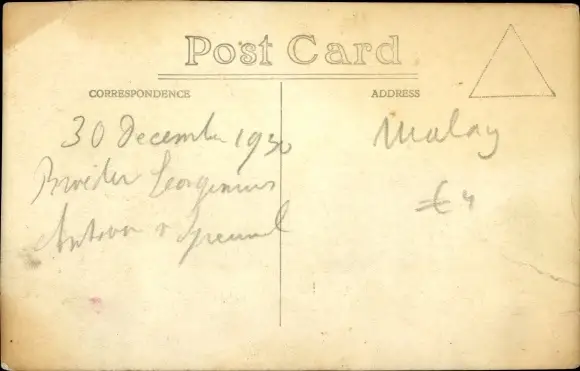 Post Card
CORRESPONDENCE
ADDRESS
30 December 1930
Broeder Georgenius
Antoon v
Malay
€4